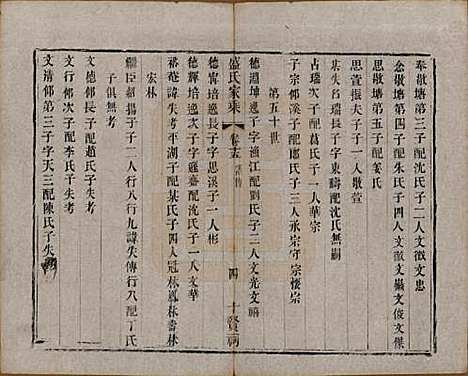 奉揪塘第三子配沈氏子二人文徵文忠
念揪塘第四子配朱氏子四人文徵文巖文俊文傑
揪塘第五子配姜氏
思萱振夫子一人揪萱
某失名瑞長子字東疇配沈氏無嗣
占瑞次子配葛氏子一人華宗
子宗仰溪子配鄭氏子三人永宗守宗懷宗
第五十世
盛氏家乘
卷十三
四
十賢祠
德淵坤逵子字漁江配劉氏子二人文光文
德賓培逵長子字思溪子一人彬
德輝培逵次子字蓋齋配沈氏子一人文華
裕菴諱失考平湖子配某氏子四人冠林鳳林喬林
宏林
繼臣紹揚子子二人行八行九諱失傳行八配丁氏
子俱無考
文德仰長子配趙氏子失考
文行仰次子配李氏子失考
文清仰第三子字天三配陳氏子失